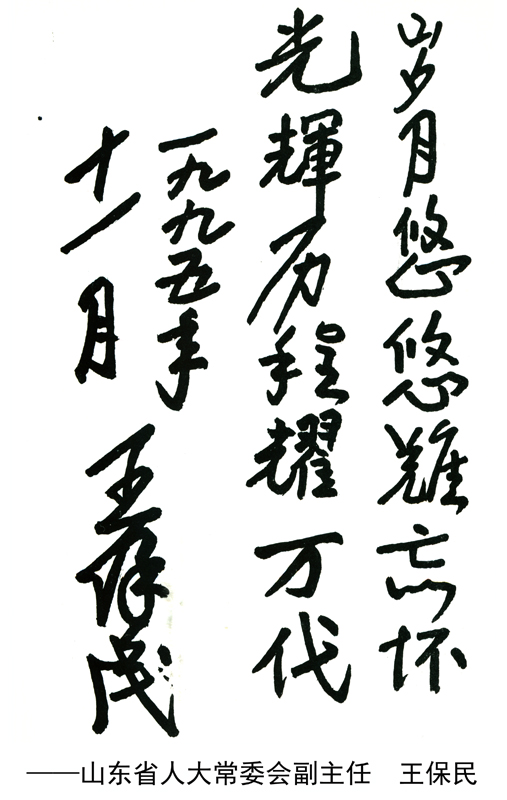 岁月悠悠难忘怀
光輝历程耀万代
一九九五年
十一月 王保民
——山东省人大常委会副主任 王保民